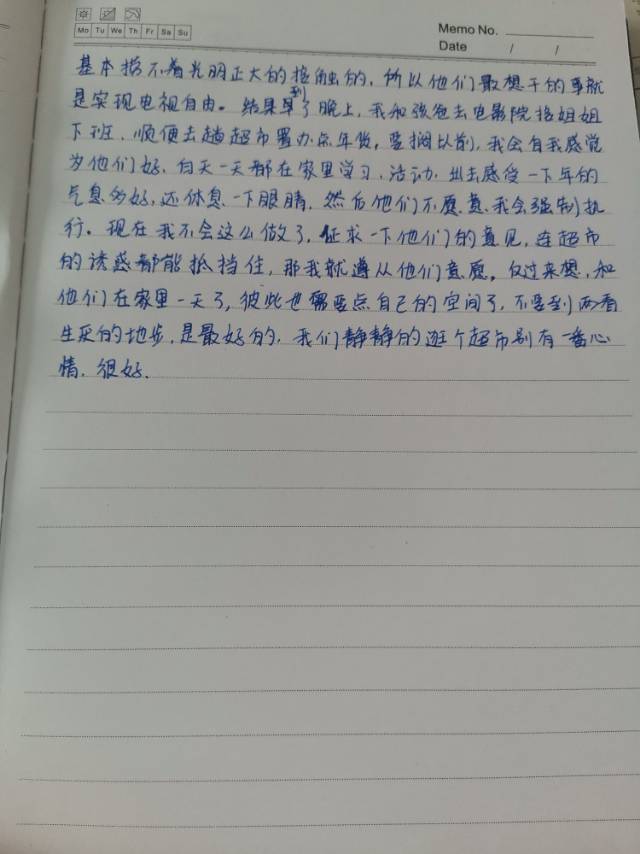 Memo No.
Mo Tu We Th Fr Sa Su
Date / /
基本捞不着光明正大的接触的，所以他们最想干的事就
是实现电视自由。结果到了晚上，我和张爸去电影院接姐姐
下班，顺便去趟超市置办点年货，要搁以前，我会自我感觉
为他们好，白天一天都在家里学习、活动，出去感受一下年的
气息多好，还休息一下眼睛，然后他们不愿意，我会强制执
行。现在我不会这么做了，征求一下他们的意见，连超市
的诱惑都能抵挡住，那我就遵从他们意愿，反过来想，和
他们在家里一天了，彼此也需要点自己的空间了，不要到两看
生厌的地步，是最好的，我们静静的逛个超市别有一番心
情，很好.